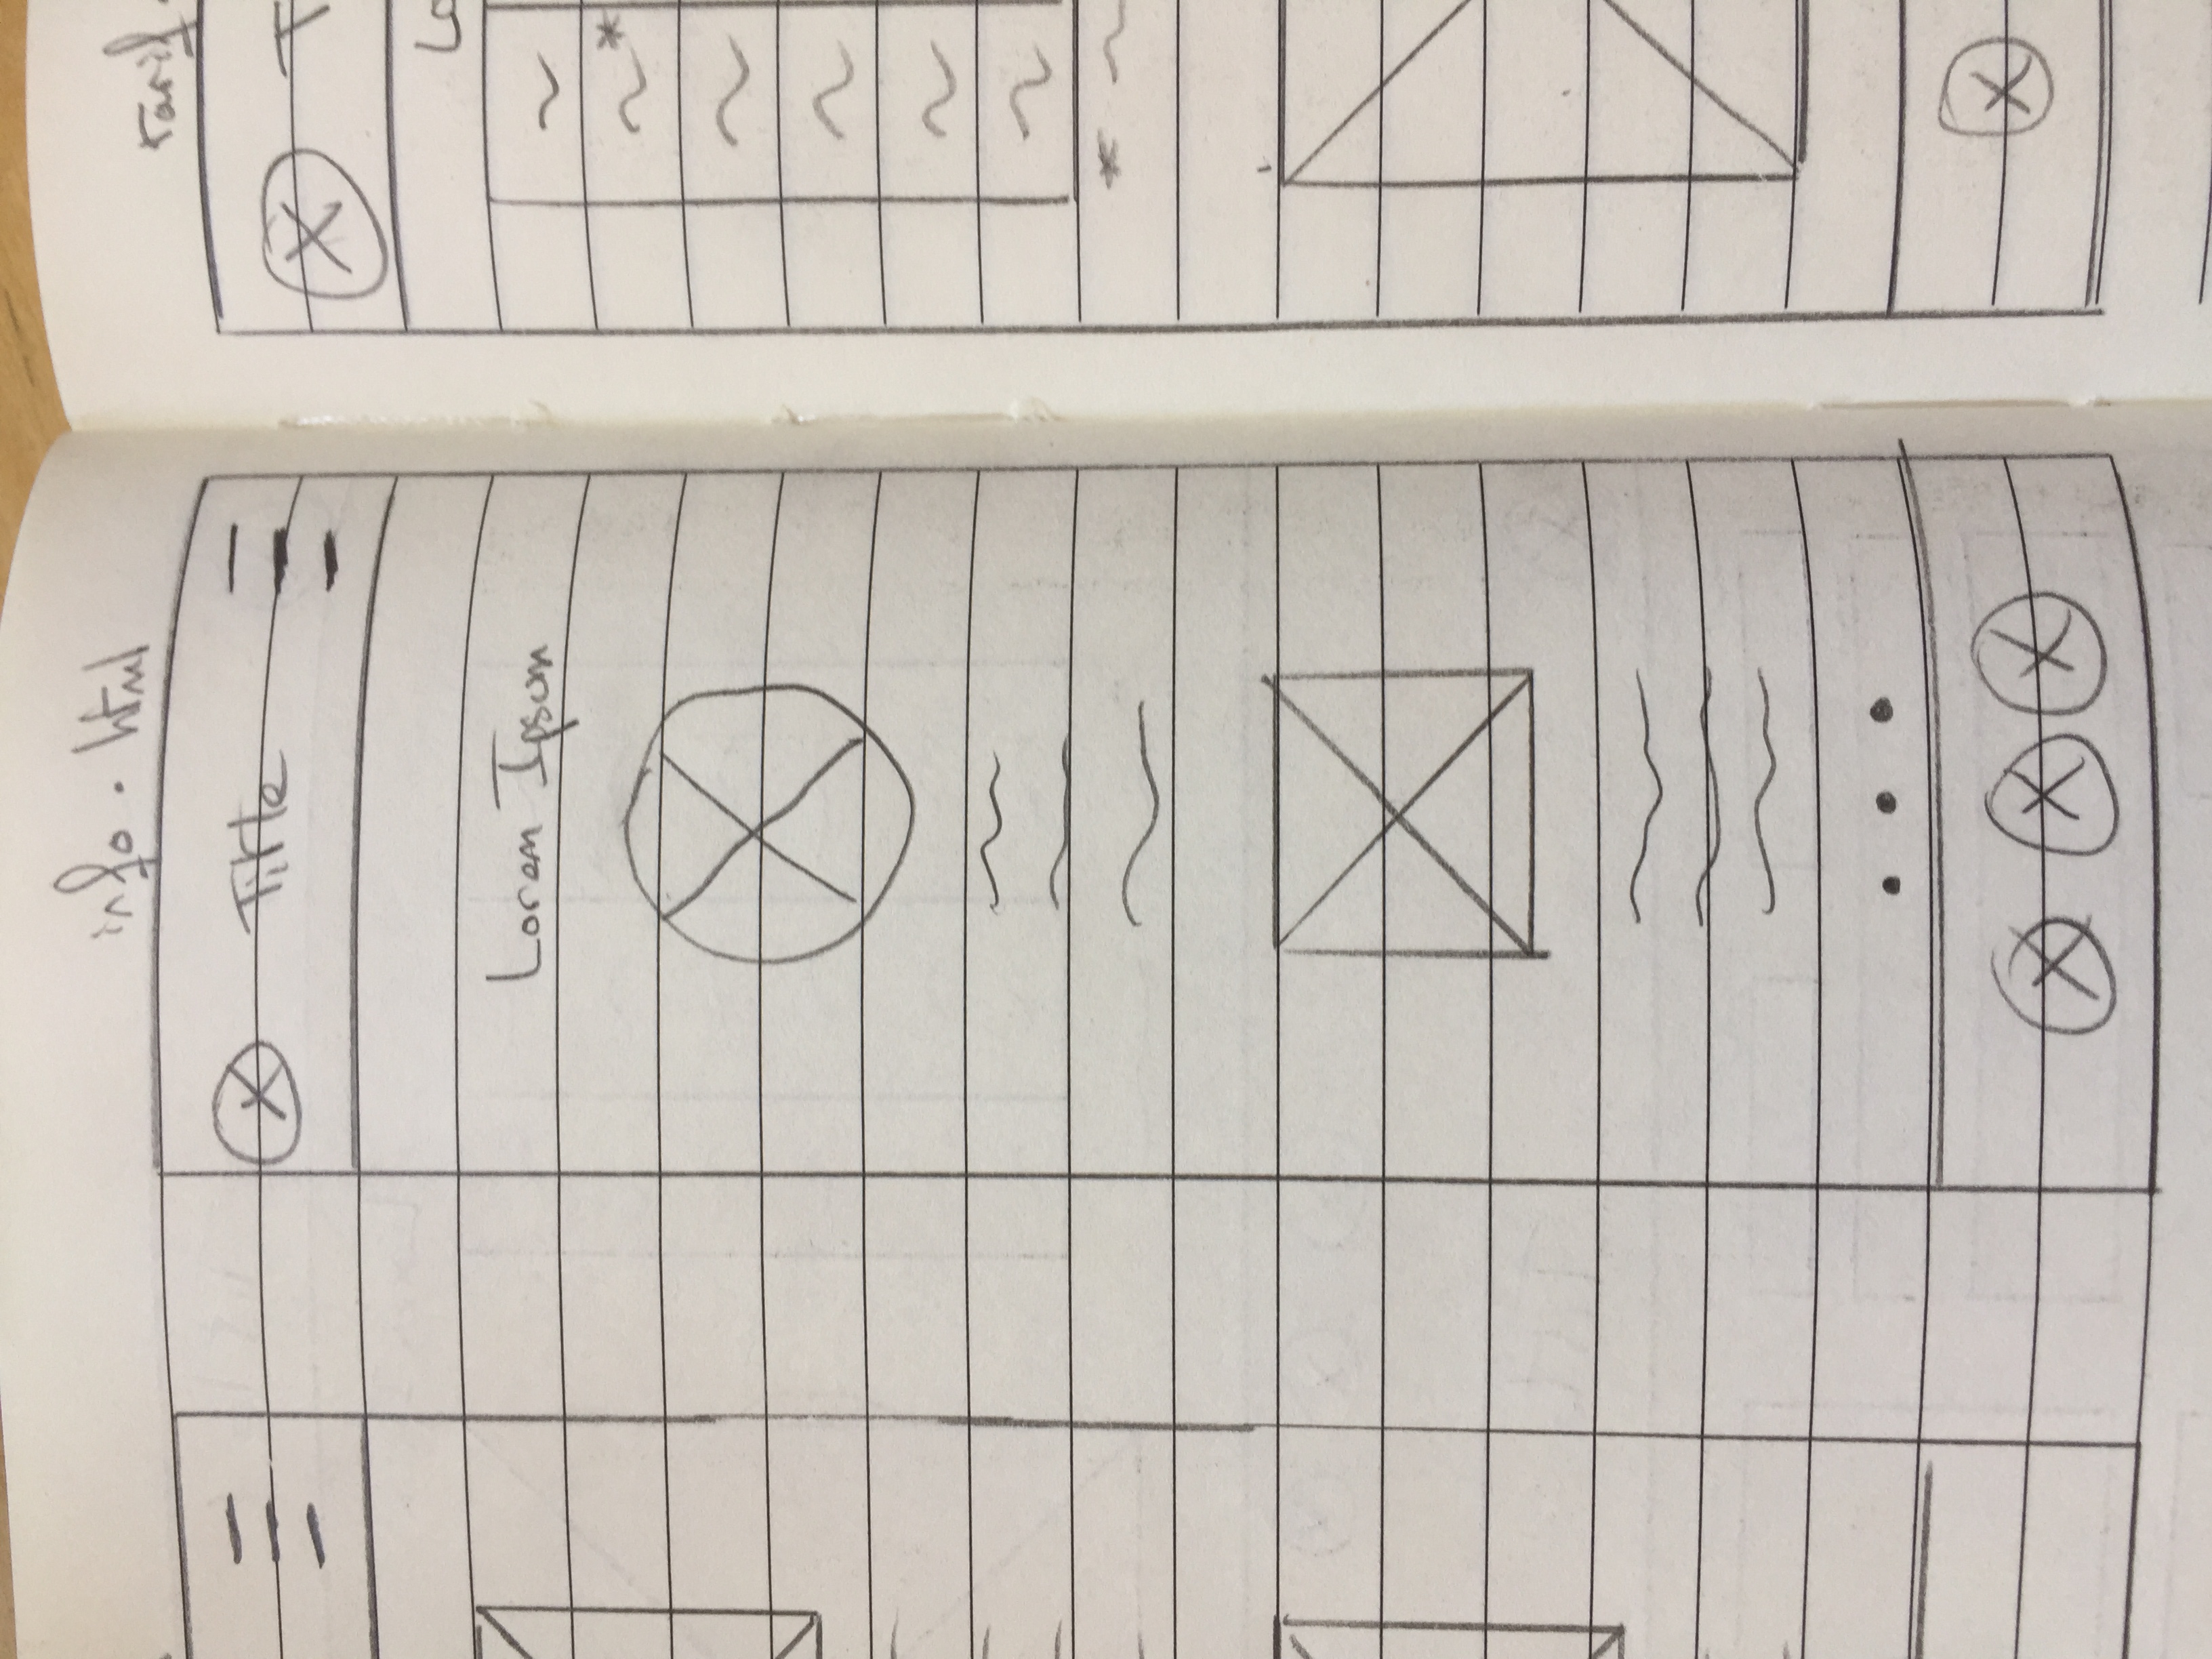 info.html
Title
Lorem Ipsum
tarif.
T
Lo
*
*